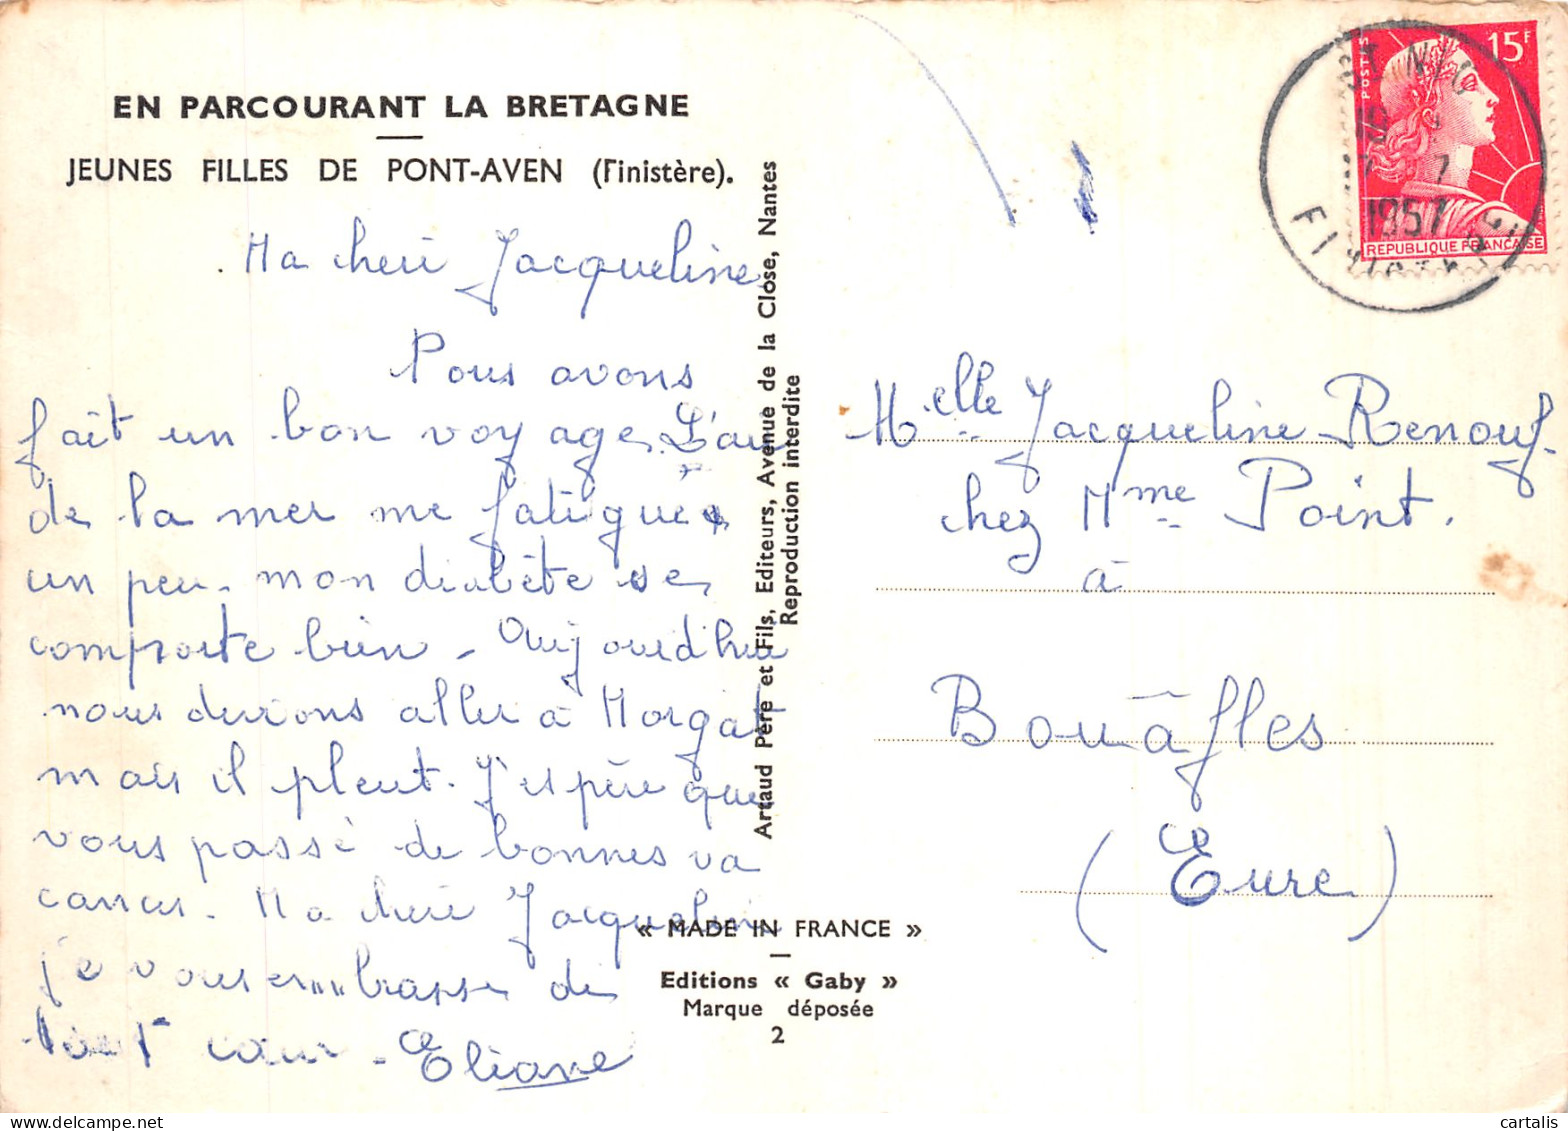 EN PARCOURANT LA BRETAGNE
JEUNES FILLES DE PONT-AVEN (Finistère).
Ma cheri Jacqueline
Nous avons
fait un bon voyage. L'air
de la mer me fatigue
un peu. mon diabète se
comporte bien - Aujourd'hui
nous devions aller à Morgat
mais il pleut. J'espère que
vous passé de bonnes va
cances. Ma cheri Jacqueline
je vous embrasse de
tout cœur - Eliane
Artaud Père et Fils, Editeurs, Avenue de la Close, Nantes
Reproduction interdite
« MADE IN FRANCE »
Editions « Gaby »
Marque déposée
2
POSTES
15F
REPUBLIQUE FRANCAISE
ST NIC
19
7 - 7
1957
FINISTERE
Melle Jacqueline Renouf
chez Mme Point.
à
Bouâfles
(Eure)
cartalis